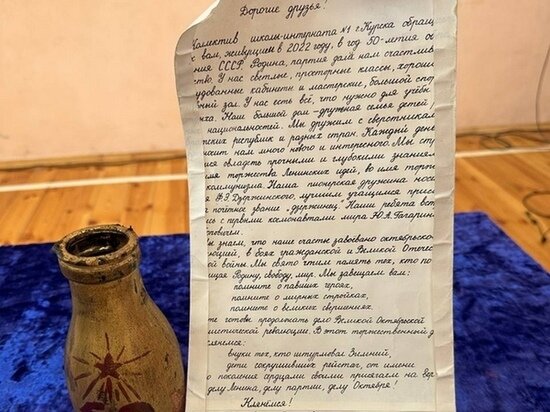 Дорогие друзья!
Коллектив школы-интерната №1 г. Курска обращ
к вам, живущим в 2022 году, в год 50-летия об
ния СССР. Родина, партия дала нам счастлив
тво. У нас светлые, просторные классы, хорошо
удованные кабинеты и мастерские, большой спор
ный зал. У нас есть всё, что нужно для учёбы
ыха. Наш большой дом - дружная семья детей
национальностей. Мы дружим с сверстникам
тских республик и разных стран. Каждый день
осит нам много нового и интересного. Мы стр
ся овладеть прочными и глубокими знания-
имя торжества Ленинских идей, во имя торже
коммунизма. Наша пионерская дружина нос
Ф.Э. Дзержинского, лучшим учащимся присв
я почётное звание "дзержинец". Наши ребята вст
сь с первыми космонавтами мира Ю.А. Гагарин
ы знаем, что наше счастье завоевано октябрьско
юцией, в боях гражданской и Великой Отечес
ой войны. Мы свято чтим память тех, кто по
щая Родину, свободу, мир. Мы завещаем вам:
помните о павших героях,
помните о мирных стройках,
помните о великих свершениях.
те готовы продолжать дело Великой Октябрьской
листической революции. В этот торжественный д
клянемся:
внуки тех, кто штурмовал Зимний,
дети сокрушивших рейхстаг, от имени
го поколения сердцами своими присягаем на вер
делу Ленина, делу партии, делу Октября!
Клянёмся!